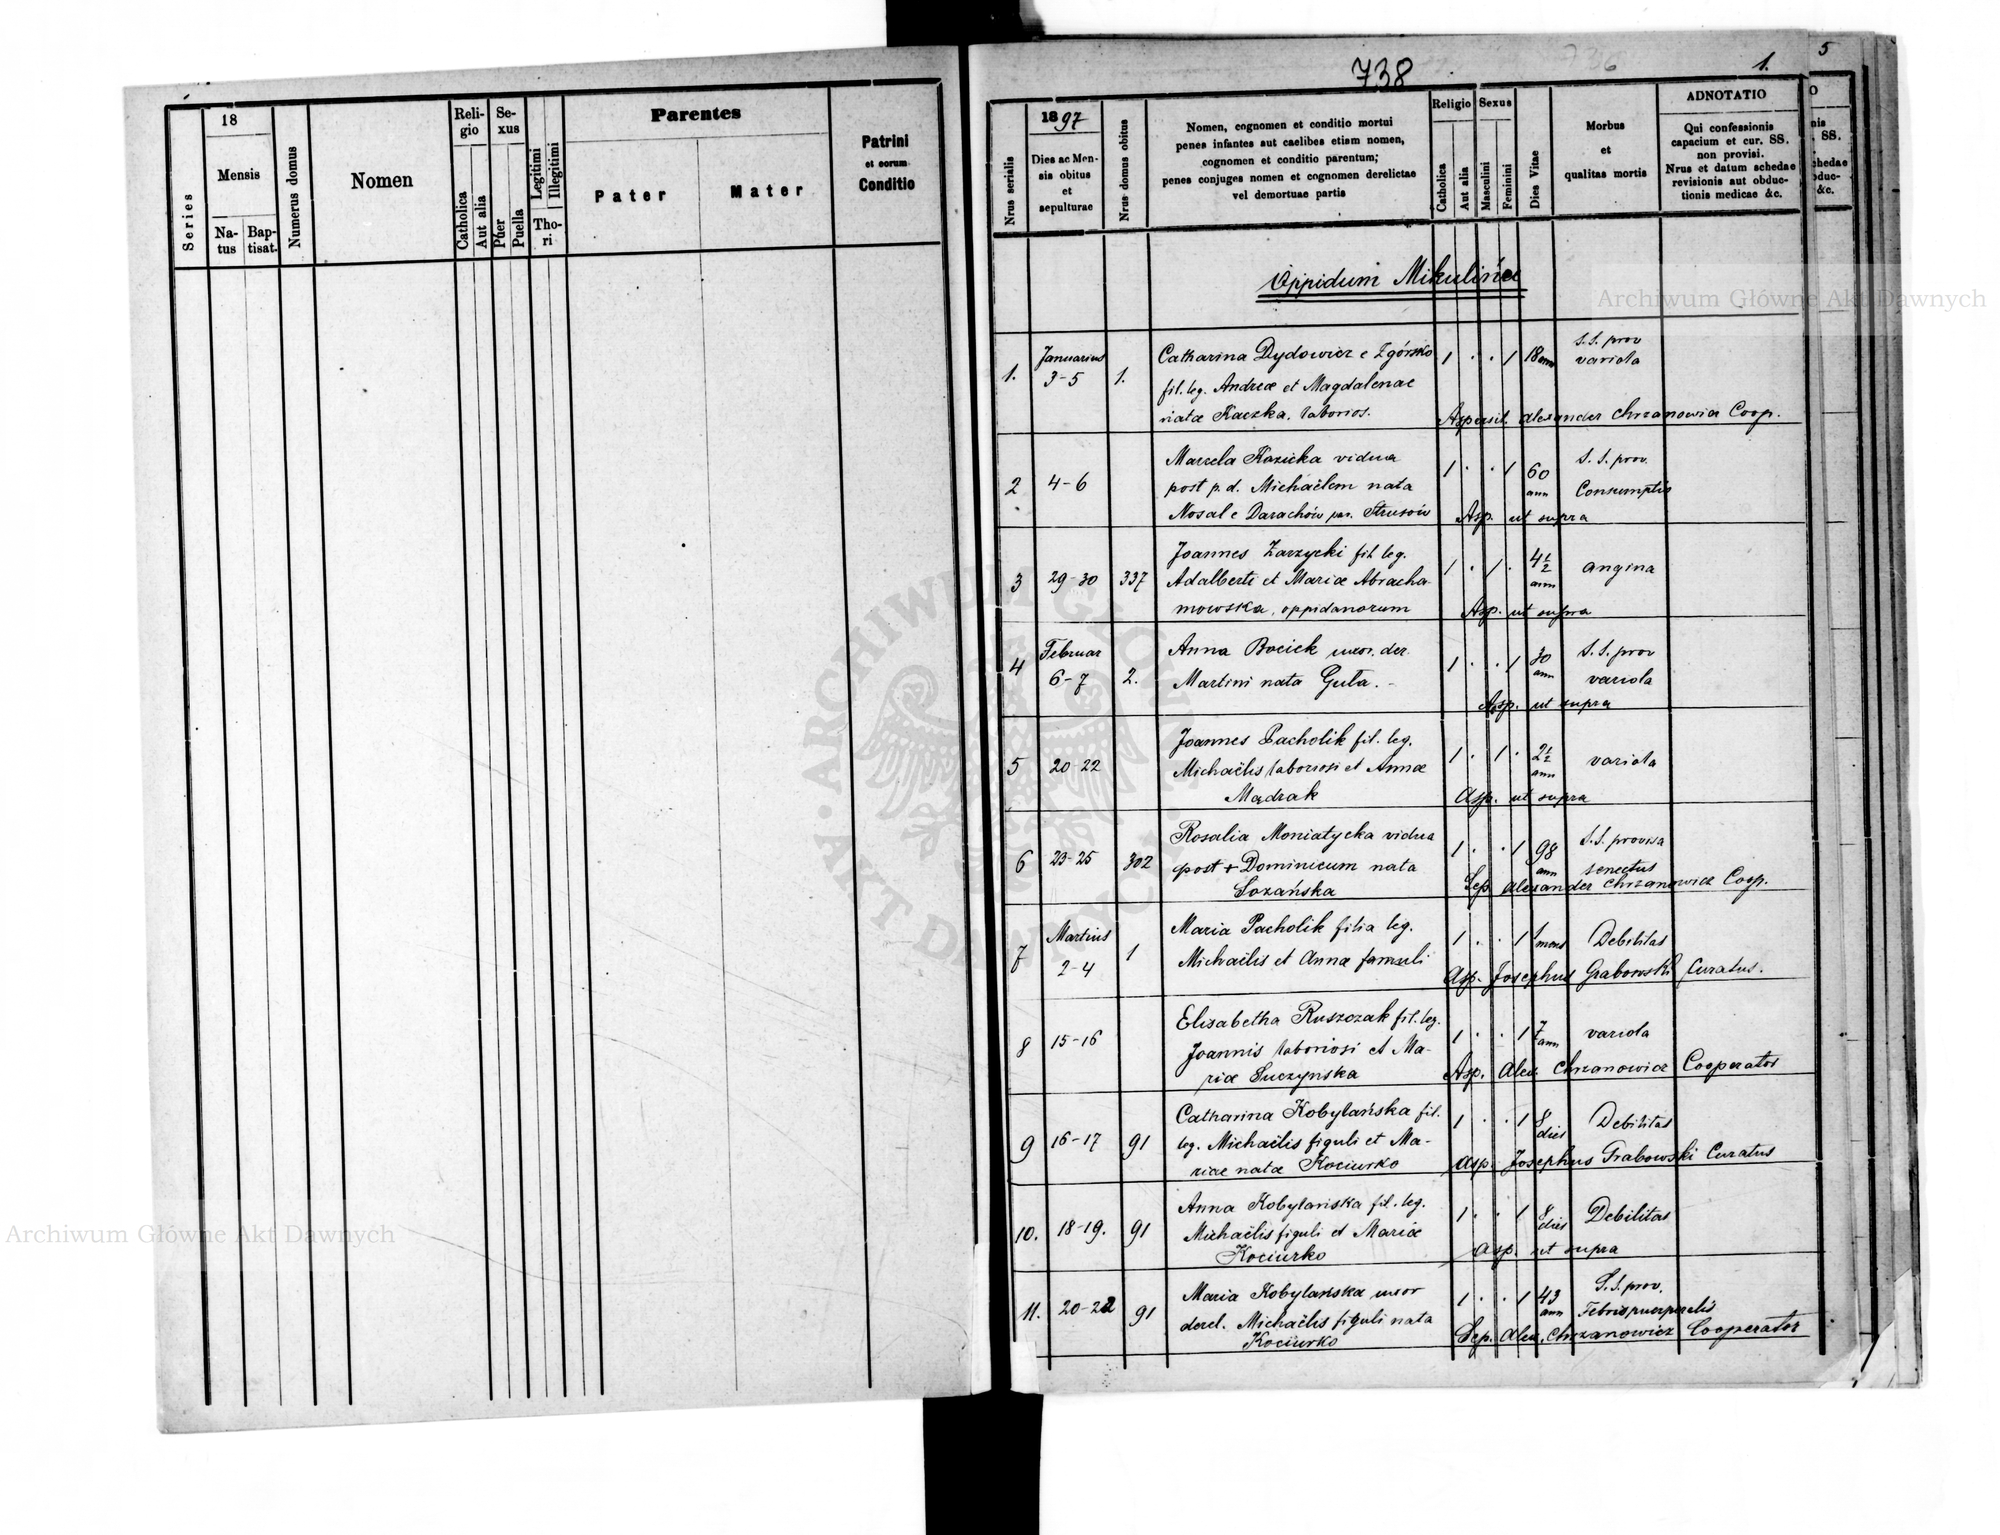 18
Mensis
Series
Na-
tus
Bap-
tisat.
Numerus domus
Nomen
Reli-
gio
Catholica
Aut alia
Se-
xus
Puer
Puella
Legitimi
Illegitimi
Tho-
ri
Parentes
Pater
Mater
Patrini
et eorum
Conditio
738
736
1.
5
Nrus serialis
1897
Dies ac Men-
sis obitus
et
sepulturae
Nrus domus obitus
Nomen, cognomen et conditio mortui
penes infantes aut caelibes etiam nomen,
cognomen et conditio parentum;
penes conjuges nomen et cognomen derelictae
vel demortuae partis
Religio
Catholica
Aut alia
Sexus
Masculini
Feminini
Dies Vitae
Morbus
et
qualitas mortis
ADNOTATIO
Qui confessionis
capacium et cur. SS.
non provisi.
Nrus et datum schedae
revisionis aut obduc-
tionis medicae &c.
Oppidum Mikulińce
1. Januarius 3-5 1. Catharina Dydowicz e Zgórsko
fil. leg. Andreæ et Magdalenae
natæ Kaczka, laborios.
1 . . 1 18 ann S.S. prov
variola
Aspersit. Alexander Chrzanowicz Coop.
2 4-6 Marcela Kozicka vidua
post p. d. Michaëlem nata
Nosal e Darachów par. Strusów
1 . . 1 60 ann S.S. prov.
Consumptis
Asp. ut supra
3 29-30 337 Joannes Zarzycki fil. leg.
Adalberti et Mariæ Abracha-
mowska, oppidanorum
1 . 1 . 4½ ann angina
Asp. ut supra
4 Februar 6-7 2. Anna Bociek uxor. der.
Martini nata Guła. -
1 . . 1 30 ann S.S. prov
variola
Asp. ut supra
5 20-22 Joannes Pacholik fil. leg.
Michaëlis laboriosi et Annæ
Mądrak
1 . 1 . 2½ ann variola
Asp. ut supra
6 23-25 302 Rosalia Moniatycka vidua
post + Dominicum nata
Sozańska
1 . . 1 98 ann S.S. provisa
senectus
Sep. Alexander Chrzanowicz Coop.
7 Martius 2-4 1 Maria Pacholik filia leg.
Michaëlis et Anna famuli
1 . . 1 1 mens Debilitas
Asp. Josephus Grabowski Curatus.
8 15-16 Elisabetha Ruszczak fil. leg.
Joannis laboriosi et Ma-
riæ Suczynska
1 . . 1 7 ann variola
Asp. Alex. Chrzanowicz Cooperator
9 16-17 91 Catharina Kobylańska fil.
leg. Michaëlis figuli et Ma-
riae natæ Kociurko
1 . . 1 8 dies Debilitas
Asp. Josephus Grabowski Curatus
10. 18-19. 91 Anna Kobylańska fil. leg.
Michaëlis figuli et Mariæ
Kociurko
1 . . 1 8 dies Debilitas
Asp. ut supra
11. 20-22 91 Maria Kobylańska uxor
derel. Michaëlis figuli nata
Kociurko
1 . . 1 43 ann S.S. prov.
Febris puerperalis
Sep. Alex. Chrzanowicz Cooperator
Archiwum Główne Akt Dawnych
Archiwum Główne Akt Dawnych
ARCHIWUM GŁÓWNE AKT DAWNYCH